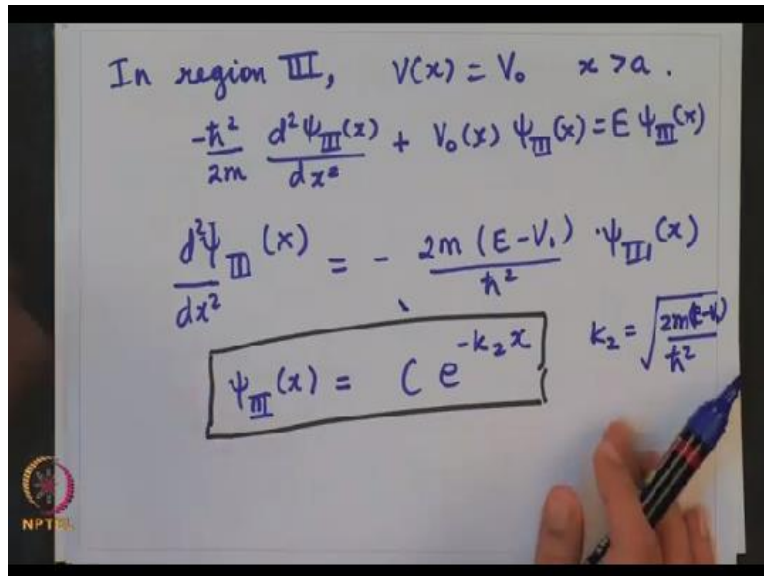 In region III, V(x) = V₀ x > a.
-ħ²/2m d²ψ_III(x)/dx² + V₀(x) ψ_III(x) = E ψ_III(x)
d²ψ_III(x)/dx² = - 2m (E - V₁)/ħ² · ψ_III(x)
ψ_III(x) = C e^{-k₂x} k₂ = √(2m(E-V₁)/ħ²)
NPTEL